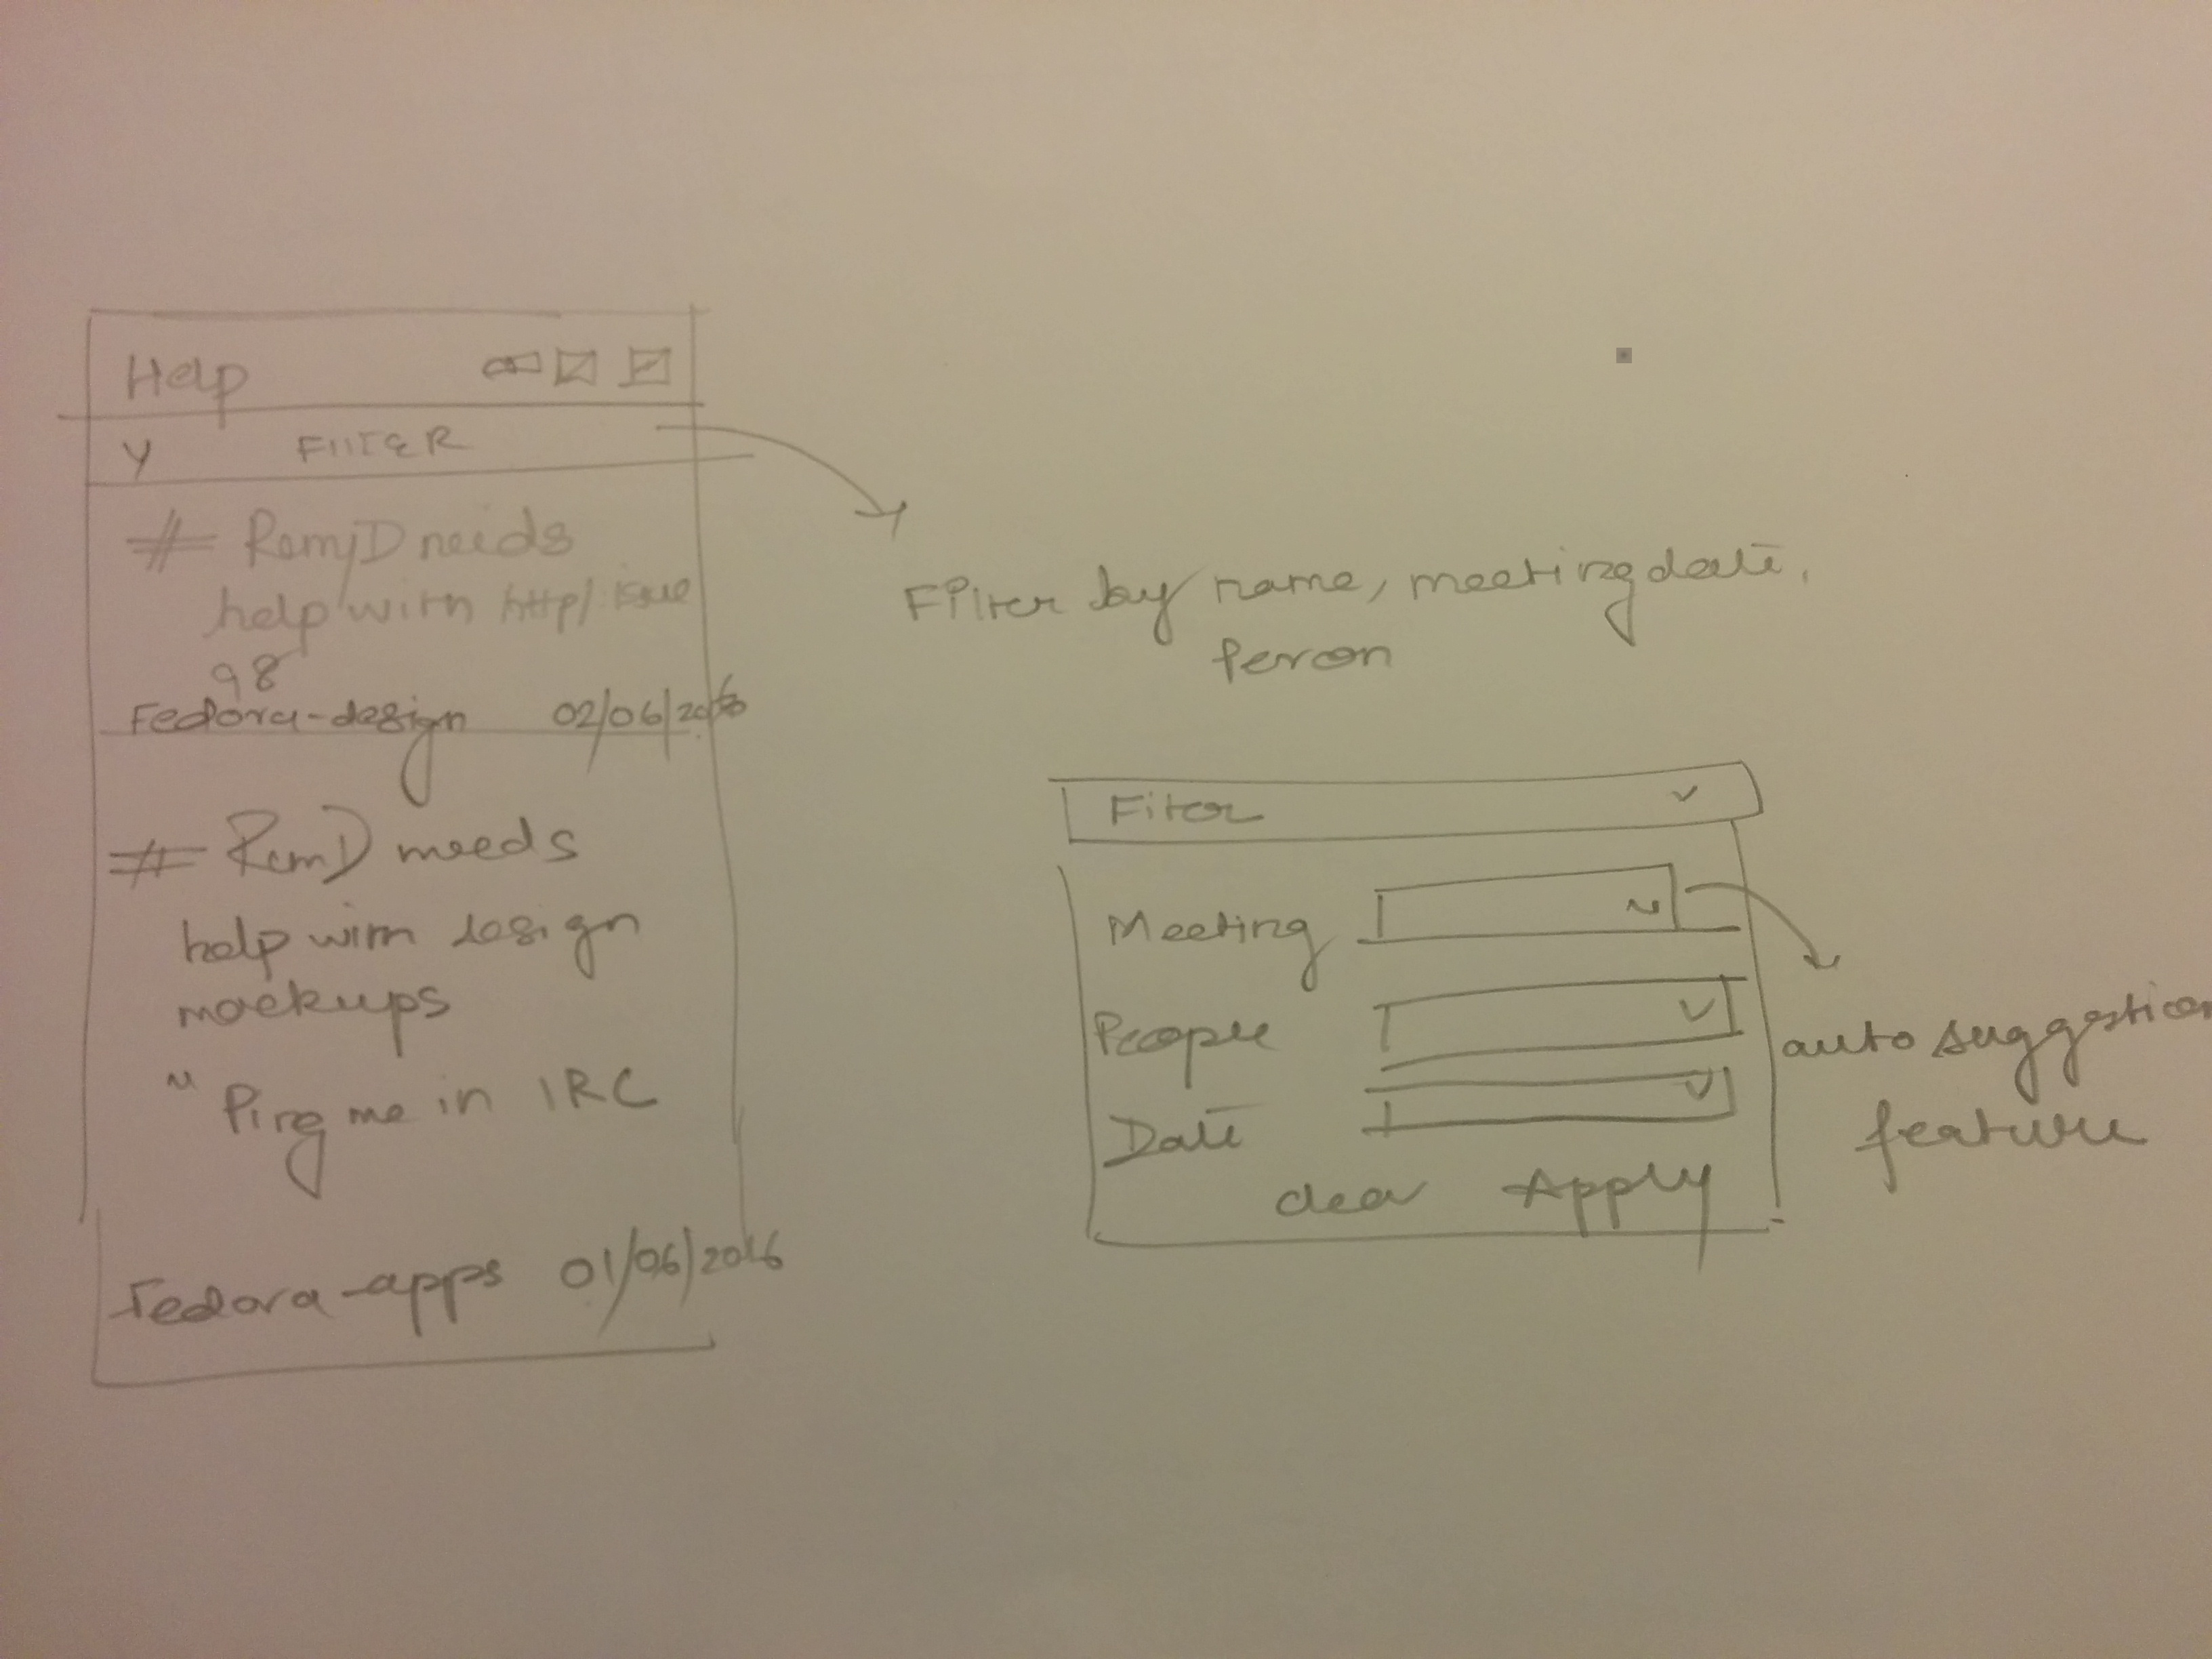 Help
FIITER
# RemyD needs
help with http/issue
98
Fedora-design 02/06/2016
# RemD needs
help with design
mockups
" Ping me in IRC
Fedora-apps 01/06/2016
Filter by name, meeting date,
Peron
Fiter
Meeting
People
Date
clear Apply
auto suggestion
feature